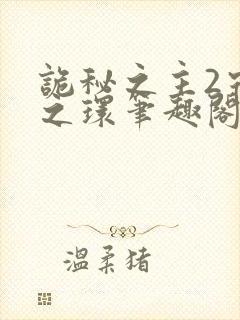 詭秘之主2
之環筆趣閣
溫柔猪